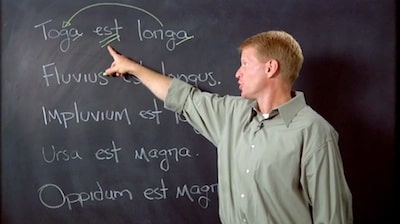 Toga est longa
Fluvius est longus.
Impluvium est
Ursa est magna.
Oppidum est magn